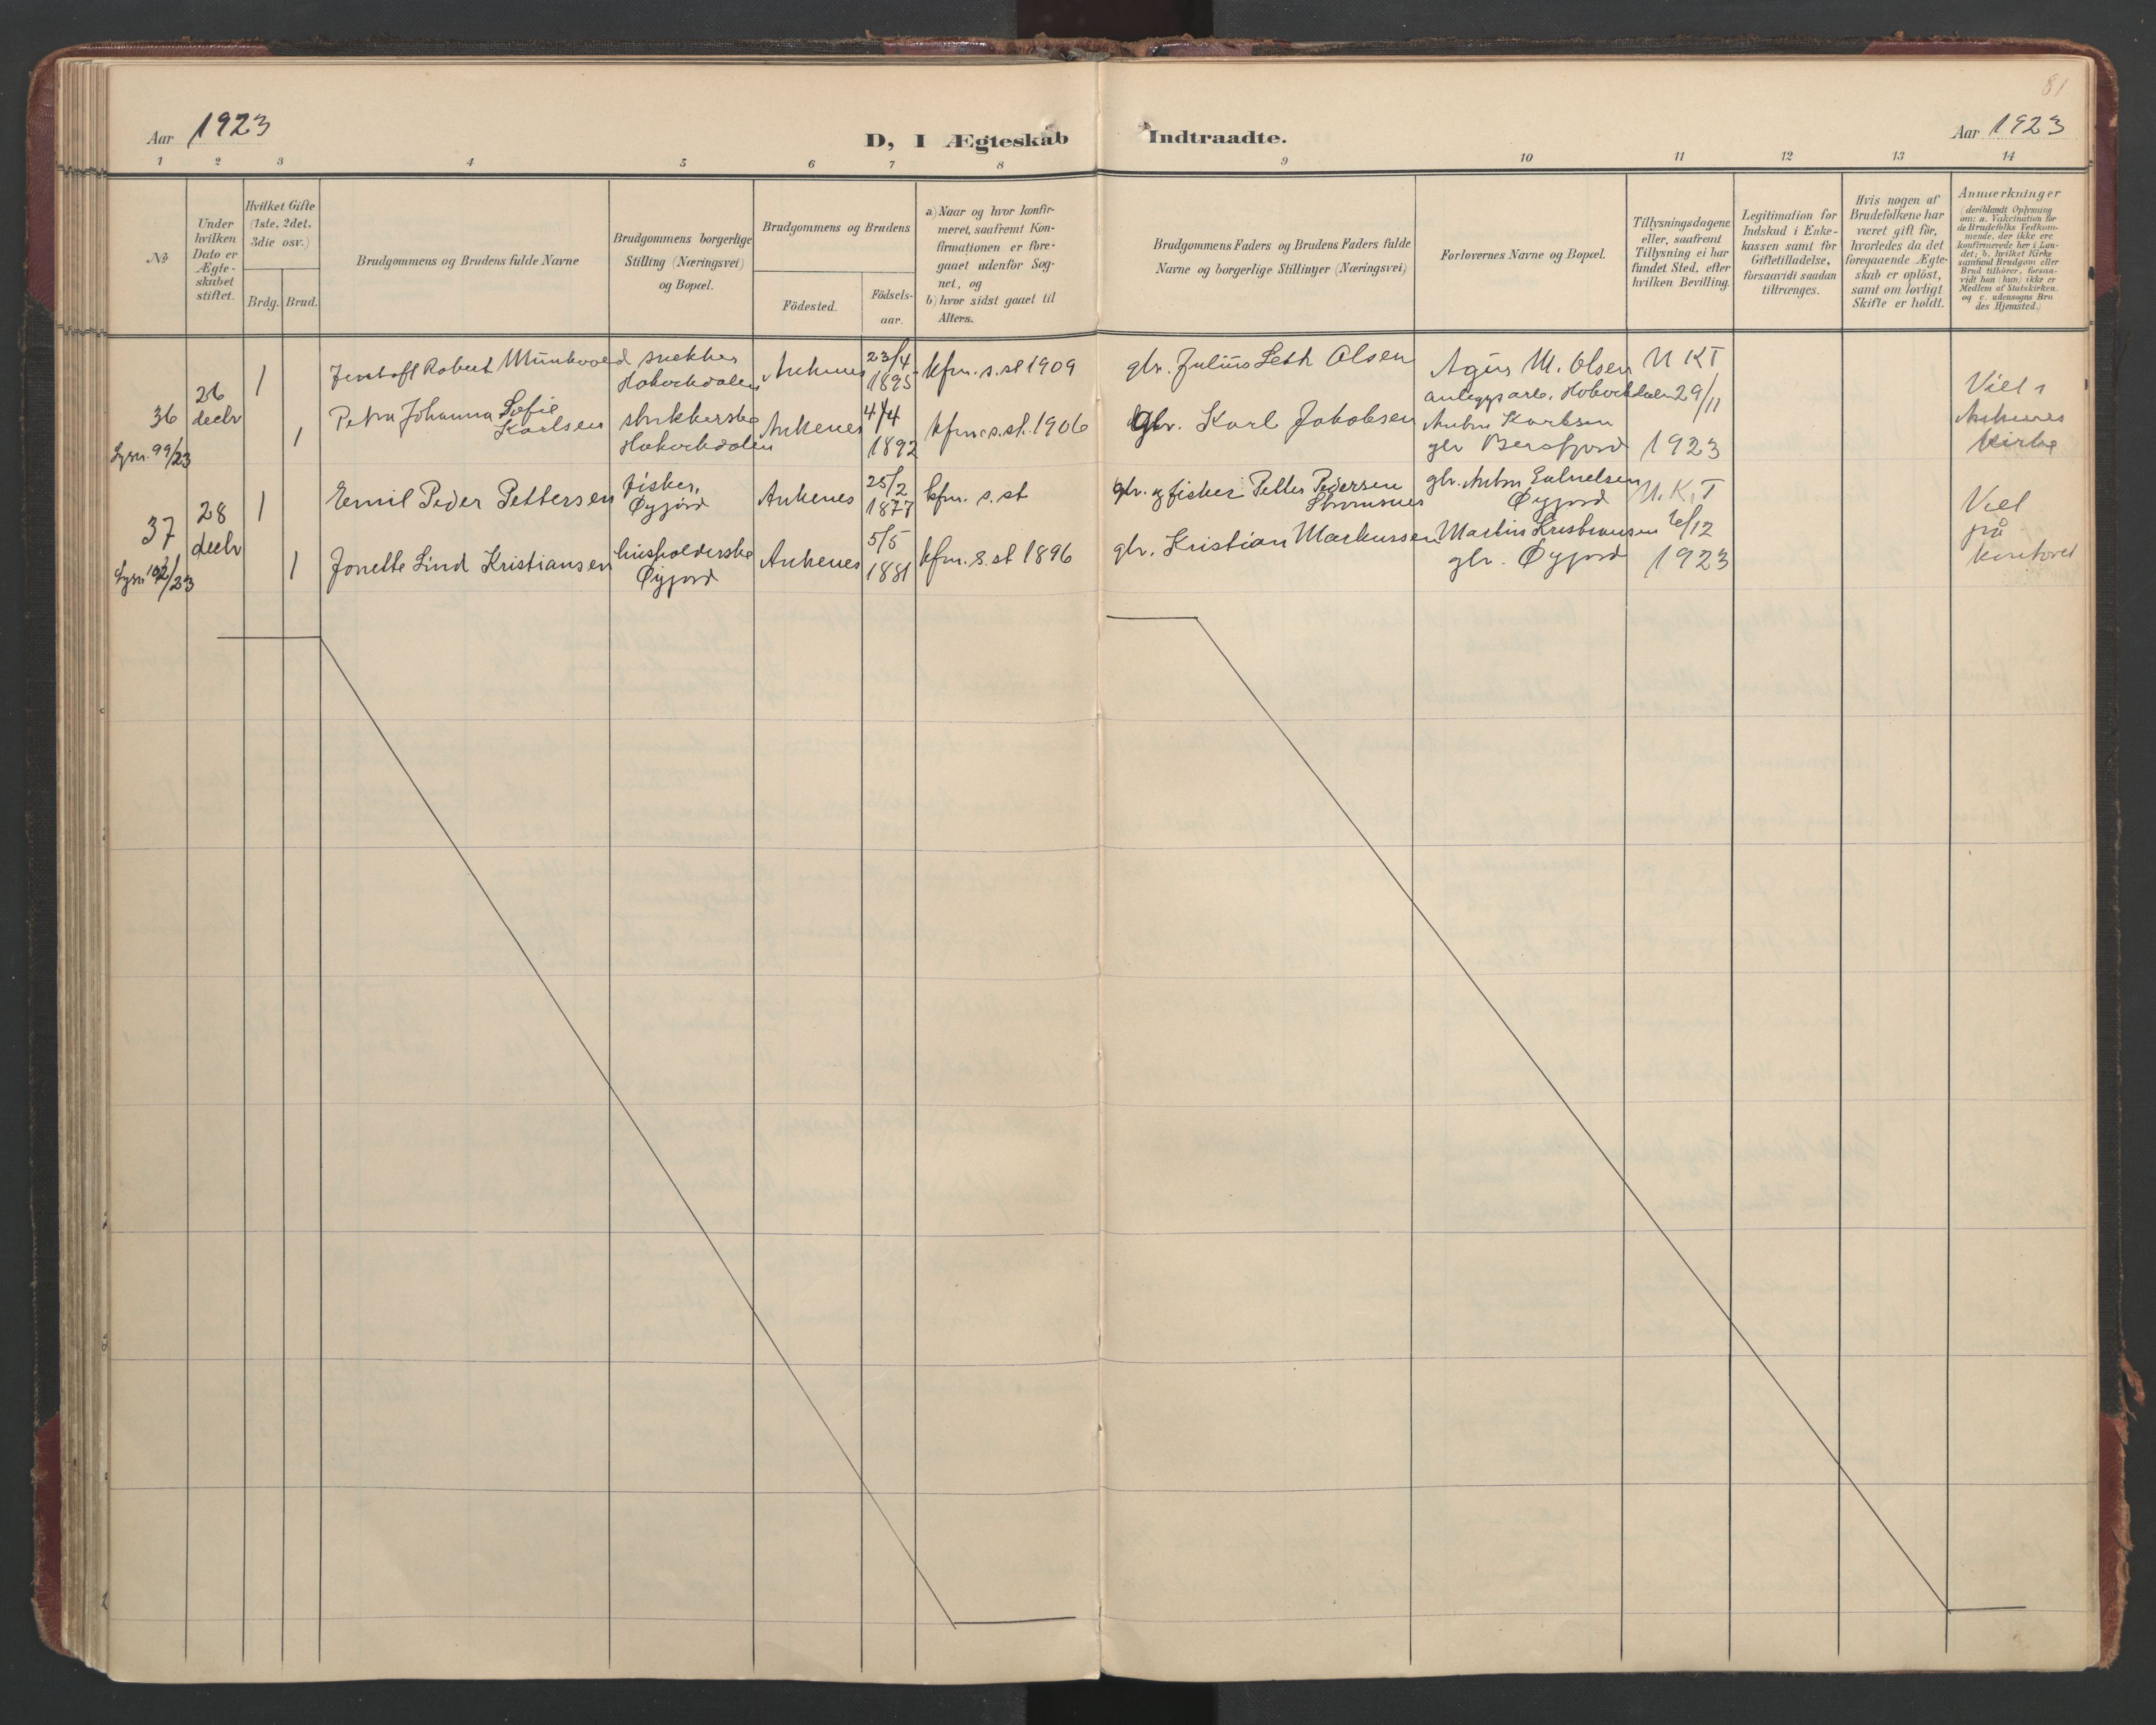 81
Aar 1923
D, I Ægteskab Indtraadte.
Aar 1923
1 2 3 4 5 6 7 8 9 10 11 12 13 14
No
Under
hvilken
Dato er
Ægte-
skabet
stiftet.
Hvilket Gifte
(1ste, 2det,
3die osv.)
Brdg. Brud.
Brudgommens og Brudens fulde Navne
Brudgommens borgerlige
Stilling (Næringsvei)
og Bopæl.
Brudgommens og Brudens
Födested.
Födsels-
aar.
a) Naar og hvor konfir-
meret, saafremt Kon-
firmationen er fore-
gaaet udenfor Sog-
net, og
b) hvor sidst gaaet til
Alters.
Brudgommens Faders og Brudens Faders fulde
Navne og borgerlige Stillinger (Næringsvei)
Forlovernes Navne og Bopæl.
Tillysningsdagene
eller, saafremt
Tillysning ei har
fundet Sted, efter
hvilken Bevilling.
Legitimation for
Indskud i Enke-
kassen samt for
Giftetilladelse,
forsaavidt saadan
tiltrænges.
Hvis nogen af
Brudefolkene har
været gift för,
hvorledes da det
foregaaende Ægte-
skab er oplöst,
samt om lovligt
Skifte er holdt.
Anmærkninger
(deriblandt Oplysning
om: a. Vakcination for
de Brudefolks Vedkom-
mende, der ikke ere
konfirmerede her i Lan-
det; b. hvilket Kirke
samfund Brudgom eller
Brud tilhörer, forsaa-
vidt han (hun) ikke er
Medlem af Statskirken.
og c. udensogns Bru
des Hjemsted.)
36
Lysn. 99/23
26
decbr
1
Robert
snekker
Ankenes
23/4
1895
kfm. s. st 1909
gbr. Julius Seth Olsen
Agns M. Olsen
anleggsarb.
N K T
29/11
1923
Viet i
Ankenes
kirke
1
Petra Johanna Sofie
Karlsen
Ankenes
4/4
1892
kfm. s. st. 1906
gbr. Karl Jakobsen
Anton Karlsen
37
Lysn 102/23
28
decbr
1
Emil Peder Pettersen
fisker,
Øyjord
Ankenes
25/2
1877
kfm. s. st
gbr. og fisker Petter Pedersen
gbr. Anton
Øyjord
N. K. T
6/12
1923
Viet
på
kontoret
1
Jonette Lind Kristiansen
husholderske
Øyjord
Ankenes
5/5
1881
kfm. s. st 1896
gbr. Kristian Markussen
Martin Kristiansen
gbr. Øyjord